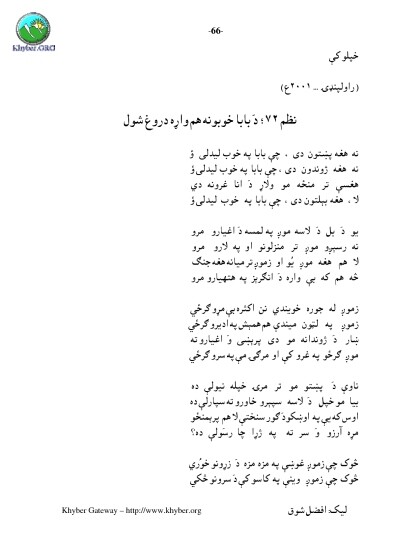 -66-
Khyber.ORG
خپلو کې
(راولپنډۍ .. ۲۰۰۱ع)
نظم ۷۲؛ دَ بابا خوبونه هم واړه دروغ شول
نه هغه پښتون دی ، چې بابا په خوب لیدلی ؤ
نه هغه ژوندون دی ، چې بابا په خوب لیدلی ؤ
هغسې تر منځه مو ولاړ دَ انا غرونه دي
لا ، هغه بېلتون دی ، چې بابا په خوب لیدلی ؤ
یو دَ بل دَ لاسه موږ په لمسه دَ اغیارو مرو
نه رسېږو موږ تر منزلونو او په لارو مرو
لا هم هغه موږ یُو او زموږ تر میانه هغه جنګ
څه هم که یې واره دَ انګریز په هتهیارو مرو
زموږ له جوړه خویندې نن اکثره بې مړو ګرځي
زموږ په لټون میندې هم همېش په ادیرو ګرځي
ښار دَ ژوندانه مو دی پرېښی وَ اغیارو ته
موږ ګرځو په غرو کې او مرګی مې په سرو ګرځي
ناوې دَ پښتو مو تر مرۍ خپله نیولې ده
بیا مو خپل دَ لاسه سپېرو خاورو ته سپارلې ده
اوس که یې په اوښکو دَ ګور سنځتې لا هم پرېمنځو
مړه آرزو وَ سر ته په ژړا چا رسَولې ده؟
څوک چې زموږ غوښې په مزه مزه دَ زړونو خوُري
څوک چې زموږ وینې په کاسو کې دَ سرونو څکي
Khyber Gateway – http://www.khyber.org
لیک: افضل شوق